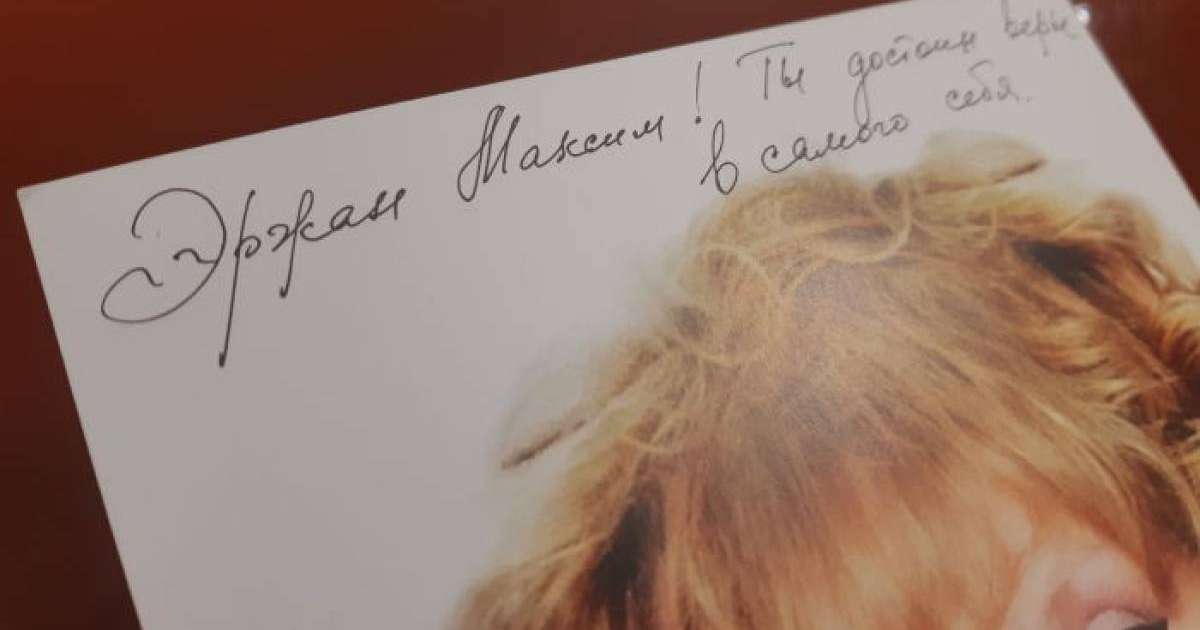 Эржан Максим! Ты достоин веры
в самого себя.